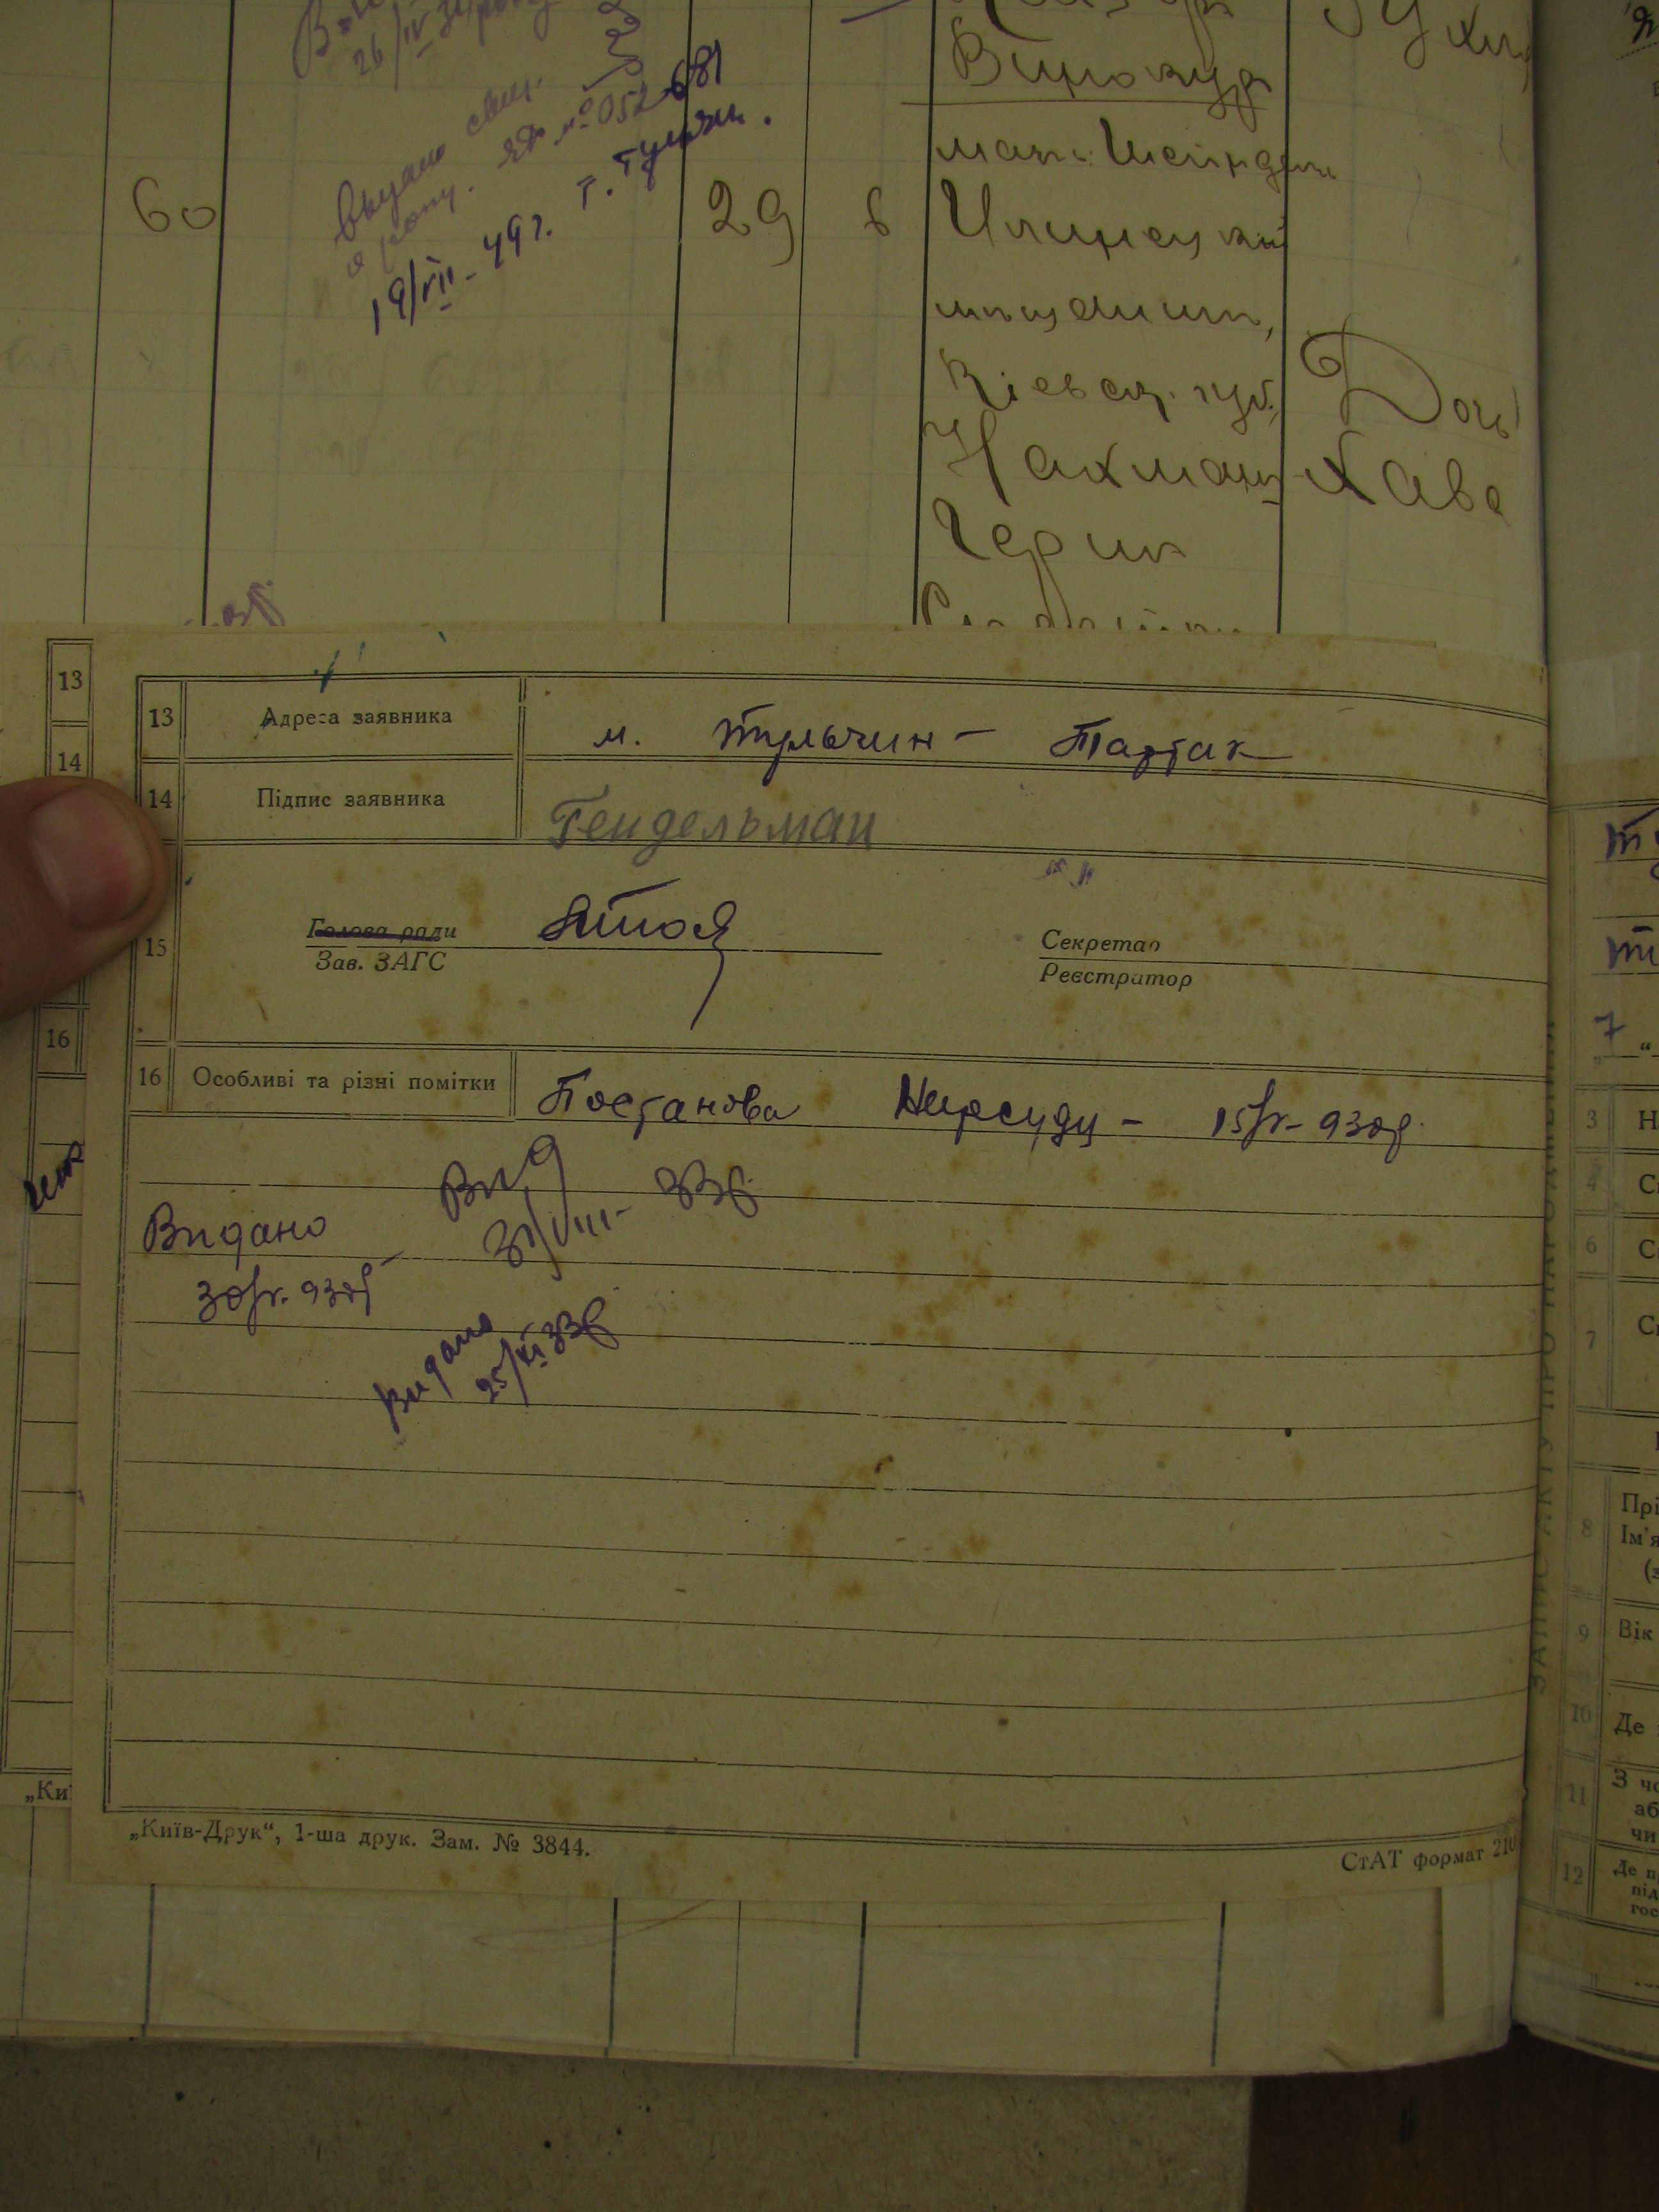 26/IV
Винокур
мать: Шейндля
выдано свид.
ЯЮ № 052681
г. Тульчин.
19/VII-49 г.
60
29
6
Илинецкий
мещанин,
Кіевск. губ.
Нахман
Черик
Дочь
Хава
13
14
16
13 Адреса заявника м. Тульчин – Тартак
14 Підпис заявника Гендельман
15
Голова ради
Зав. ЗАГС
Секретар
Реєстратор
16 Особливі та різні помітки Постанова Нарсуду – 15/V-930р.
Вид
31/VIII- 33р
Видано
30/V-930р
Видано
25/XI 33р
„Київ-Друк“, 1-ша друк. Зам. № 3844.
СтАТ формат 210
„Ки
ЗАПИС АКТУ ПРО НАРОДЖЕННЯ
7 “
3 Н
4 С
6 С
7 С
8 Прі
Ім'я
9 Вік
10 Де
11 З ч
аб
чи
12 Де п
під
гос